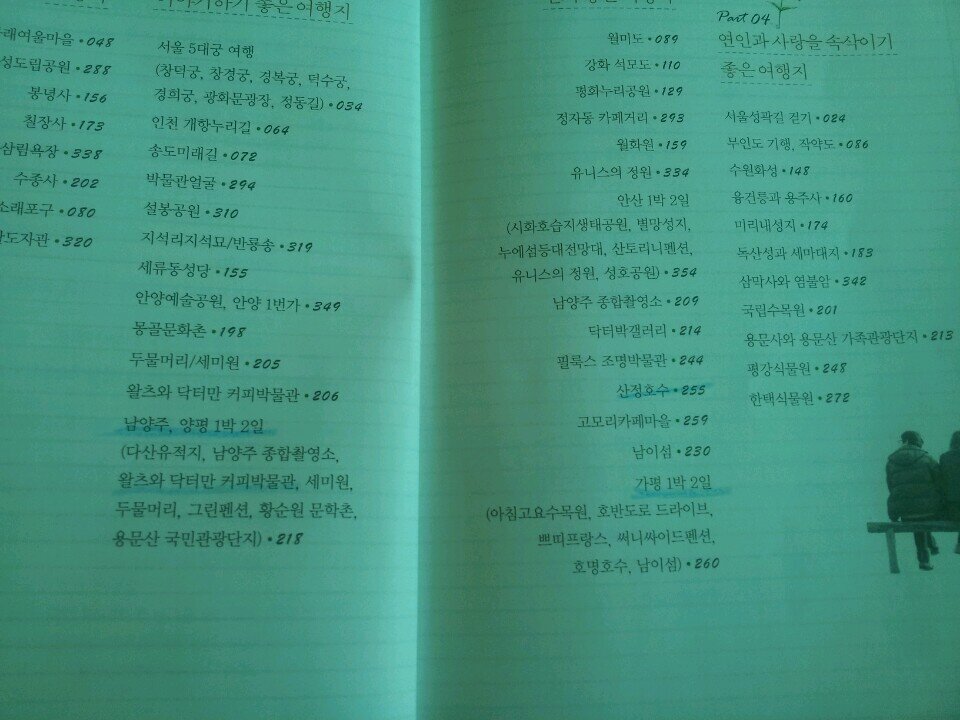 좋은 여행지
048
서울 5대궁 여행
성도립공원 • 288
(창덕궁, 창경궁, 경복궁, 덕수궁,
봉녕사 • 156
경희궁, 광화문광장, 정동길) • 034
칠장사 • 173
인천 개항누리길 • 064
삼림욕장 • 338
송도미래길 • 072
수종사 • 202
박물관얼굴 • 294
소래포구 • 080
설봉공원 • 310
도자관 • 320
지석리지석묘/반룡송 • 319
세류동성당 • 155
안양예술공원, 안양 1번가 • 349
몽골문화촌 • 198
두물머리/세미원 • 205
왈츠와 닥터만 커피박물관 • 206
남양주, 양평 1박 2일
(다산유적지, 남양주 종합촬영소,
왈츠와 닥터만 커피박물관, 세미원,
두물머리, 그린펜션, 황순원 문학촌,
용문산 국민관광단지) • 218
월미도 • 089
강화 석모도 • 110
평화누리공원 • 129
정자동 카페거리 • 293
월화원 • 159
유니스의 정원 • 334
안산 1박 2일
(시화호습지생태공원, 별망성지,
누에섬등대전망대, 산토리니펜션,
유니스의 정원, 성호공원) • 354
남양주 종합촬영소 • 209
닥터박갤러리 • 214
필룩스 조명박물관 • 244
산정호수 • 255
고모리카페마을 • 259
남이섬 • 230
가평 1박 2일
(아침고요수목원, 호반도로 드라이브,
쁘띠프랑스, 써니싸이드펜션,
호명호수, 남이섬) • 260
Part 04
연인과 사랑을 속삭이기
좋은 여행지
서울성곽길 걷기 • 024
무인도 기행, 작약도 • 086
수원화성 • 148
융건릉과 용주사 • 160
미리내성지 • 174
독산성과 세마대지 • 183
삼막사와 염불암 • 342
국립수목원 • 201
용문사와 용문산 가족관광단지 • 213
평강식물원 • 248
한택식물원 • 272